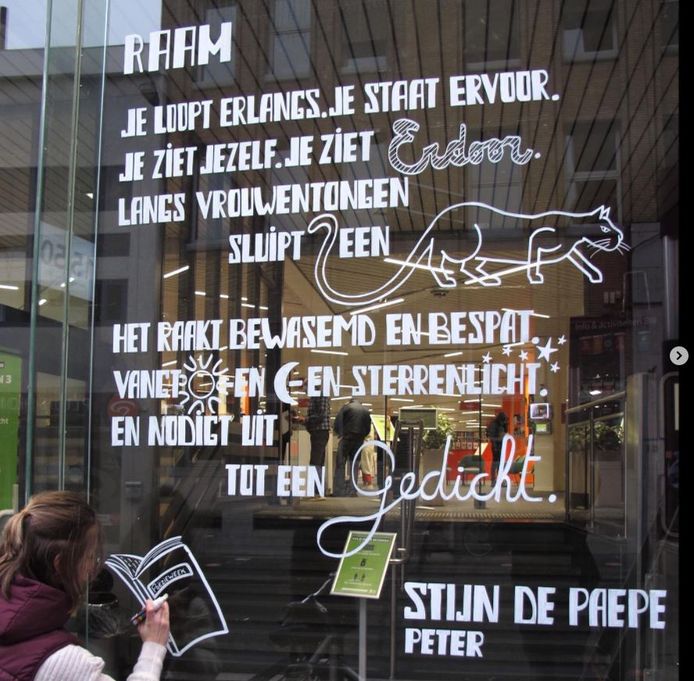 RAAM
JE LOOPT ERLANGS. JE STAAT ERVOOR.
JE ZIET JEZELF. JE ZIET Erdoor.
LANGS VROUWENTONGEN
SLUIPT EEN
HET RAAKT BEWASEMD EN BESPAT.
VANGT EN EN STERRENLICHT.
EN NODIGT UIT
TOT EEN Gedicht.
STIJN DE PAEPE
PETER
POËZIEWEEK